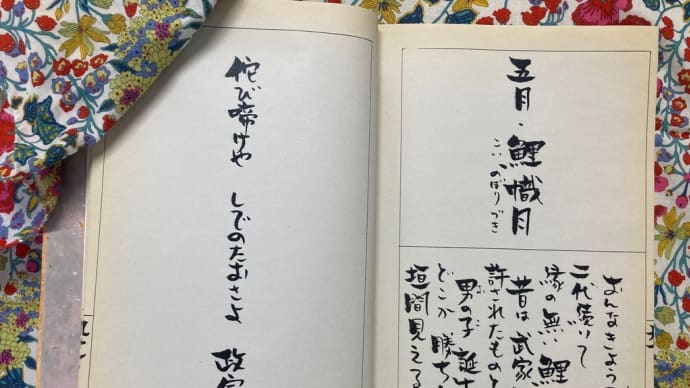 五月・鯉幟月
こいのぼりづき
おんなきよう
二代続いて
縁の無い鯉
昔は武家
許されたものと
男の子誕
どこか勝ち
垣間見える
侘び啼けや しでのたおさよ 政